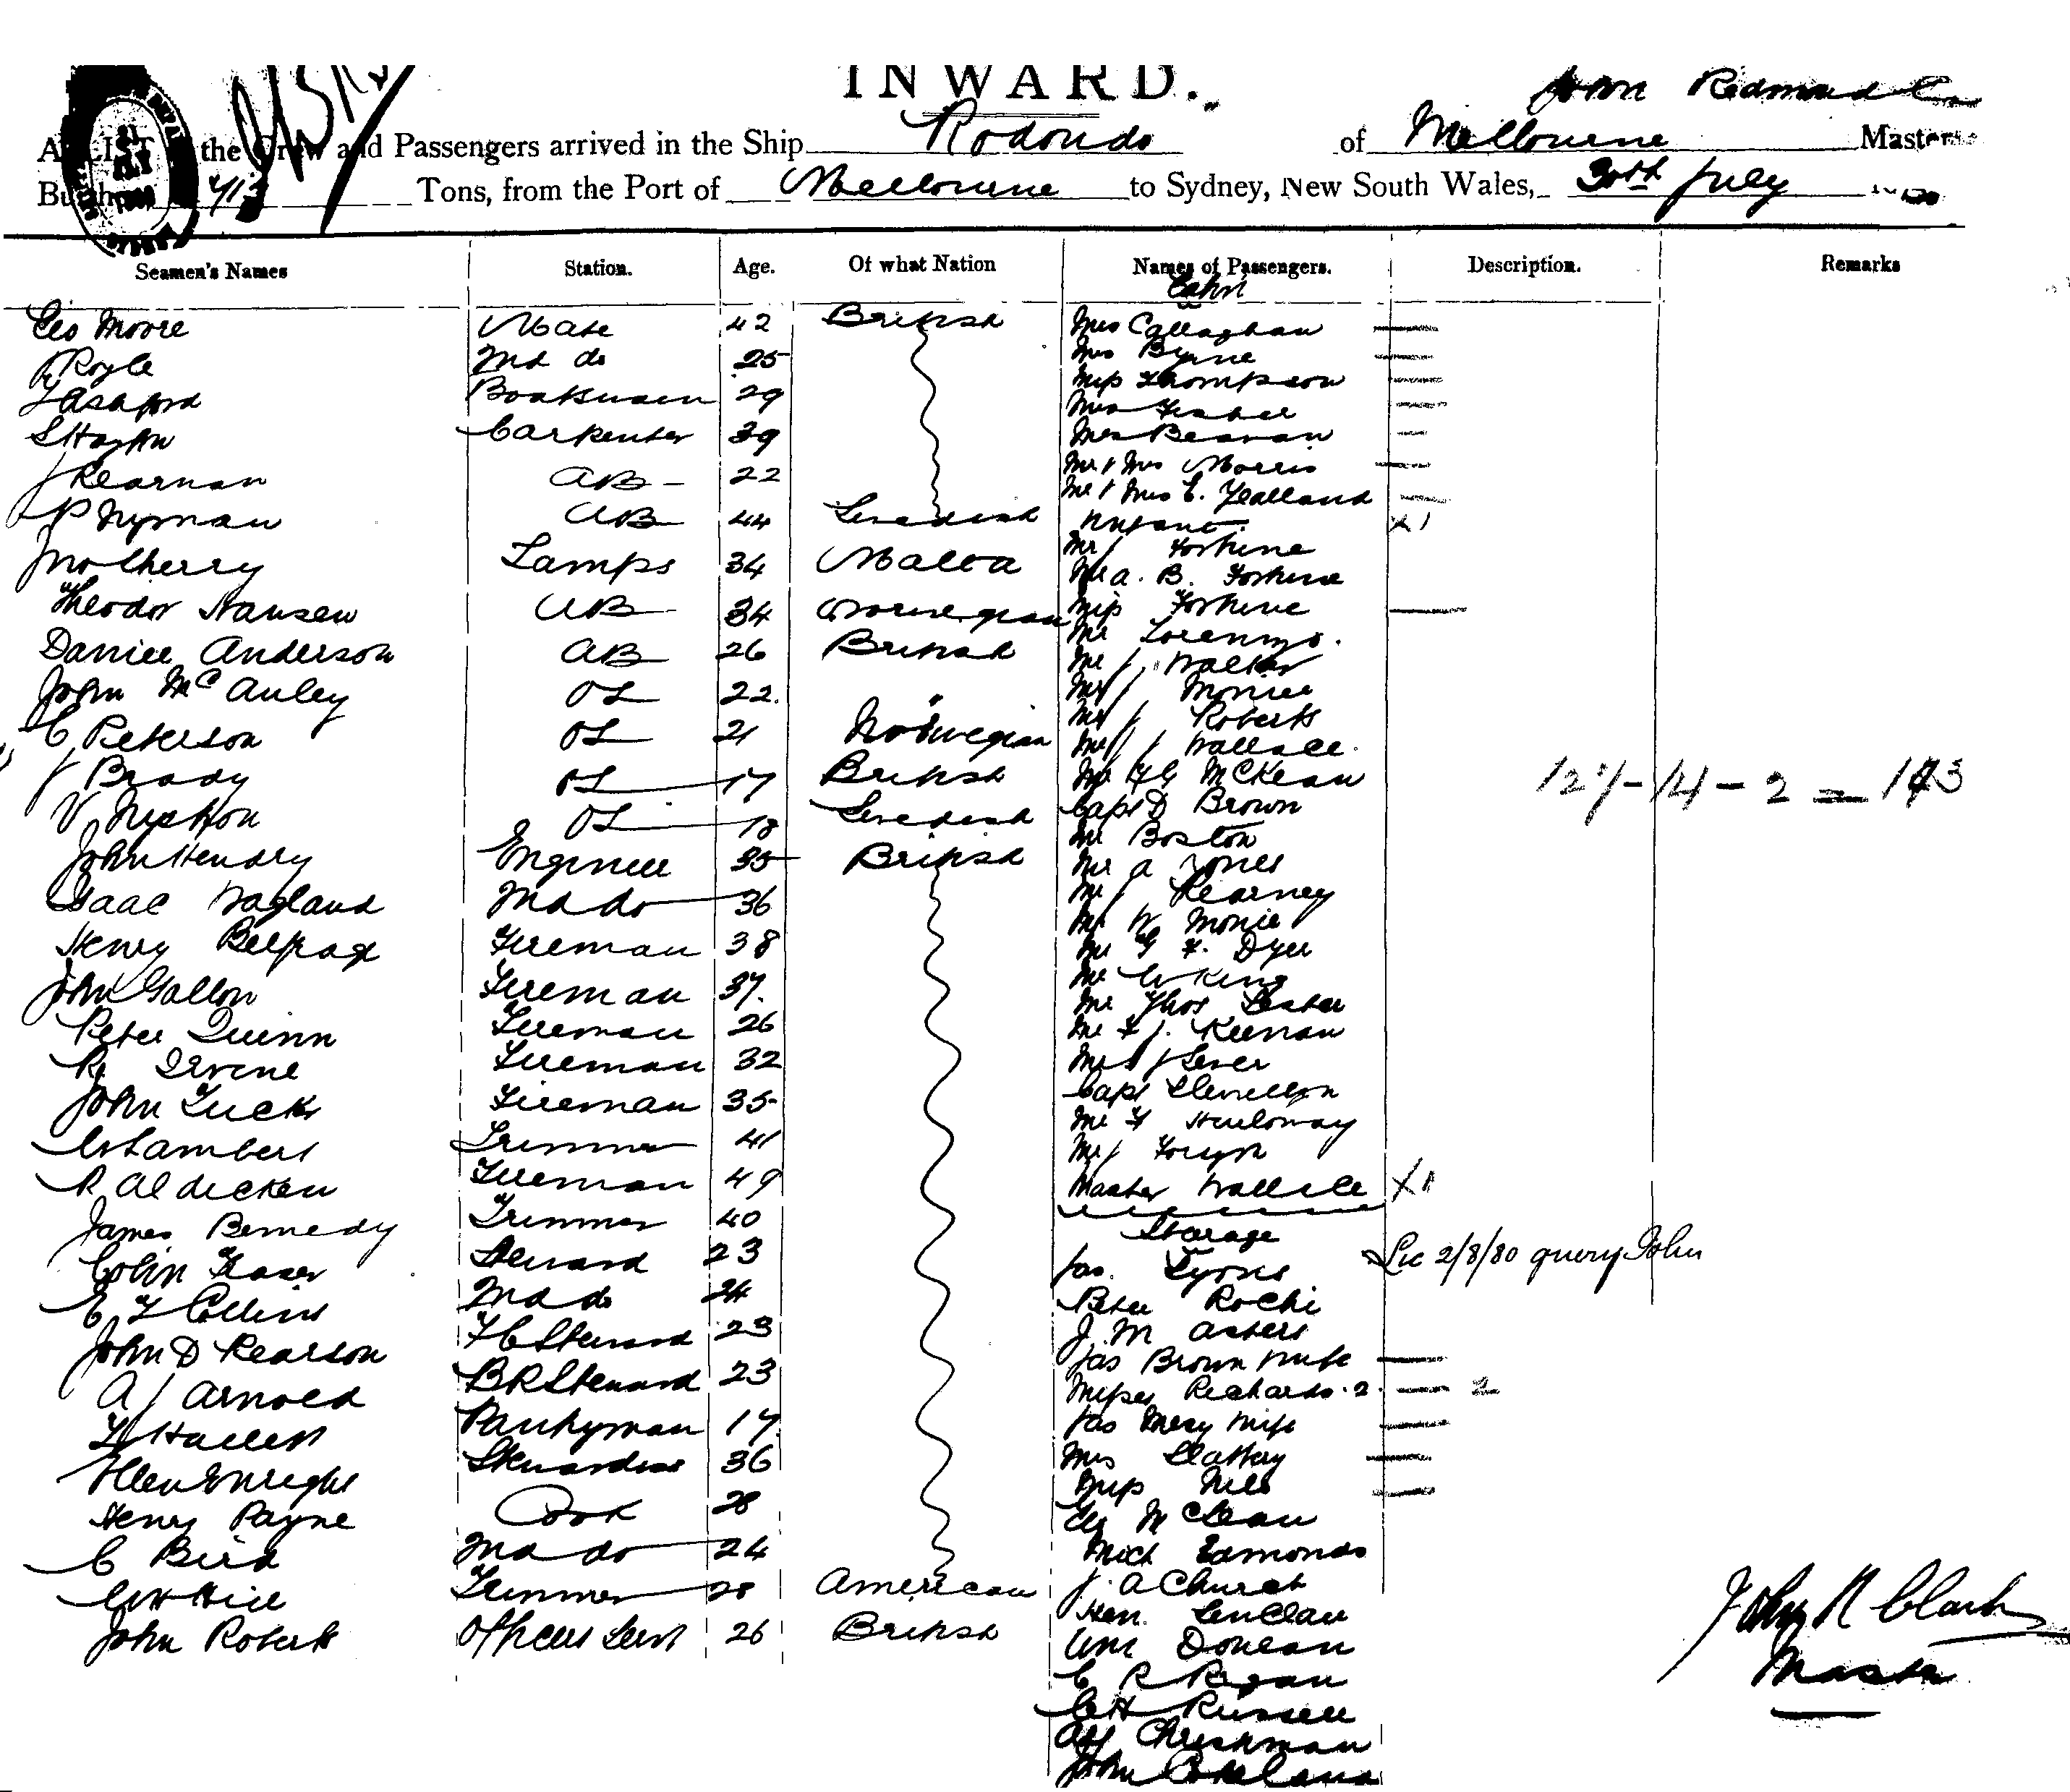 INWARD.
John Redmond
A LIST the Crew and Passengers arrived in the Ship Rodondo of Melbourne Master
Tons, from the Port of Melbourne to Sydney, New South Wales, 30th July
Seamen's Names Station. Age. Of what Nation Names of Passengers. Description. Remarks
Cabin
Geo Moore Mate 42 British
Royle 2nd do 25
J Ashford Boatswain 29
Carpenter 39
J Kearnan AB 22
P Nyman AB 44 Swedish
Jno Cherry Lamps 34 Malta
Theodor Hansen AB 34 Norwegian
Daniel Anderson AB 26 British
John McAuley OS 22.
C Peterson OS 21 Norwegian
J Brady OS 17 British
V OS 18 Swedish
John Hendry Engineer 35 British
Isaac Wagland 2nd do 36
Henry Fireman 38
John Gallon Fireman 37.
Peter Quinn Fireman 26
R Irvine Fireman 32
John Tuck Fireman 35
W Lambert Trimmer 41
R Fireman 49
James Trimmer 40
Colin Fraser Steward 23
C F Collins 2nd do 24
John D Pearson F C Steward 23
A J Arnold BR Steward 23
Hallett Pantryman 17
Ellen Enright Stewardess 36
Henry Payne Cook 28
C Bird 2nd do 24
W H Hill Trimmer 28 American
John Roberts Officers Servt 26 British
Mrs Callaghan
Mrs Byrne
Miss Thompson
Mrs
Mrs Beavan
Mr & Mrs Morris
Mr & Mrs E. Yealland
Infant X1
Mr J Fortune
Mr A. B. Fortune
Miss Fortune
Mr Lorenzo.
Mr J. Walker
Mr J
Mr J Roberts
Mr J Wallace.
Mr McKean
Capt D Brown
Mr Boston
Mr A Jones
Mr J Kearney
Mr W Monie
Mr G F. Dyer
Mr W King
Mr Thos Lester
Mr F J. Keenan
Mr J Lever
Capt Llewellyn
Mr F Holloway
Mr J
Master Wallace X1
127 - 14 - 2 = 113
Steerage
Jas. Lyons Lic 2/8/80 query John
Peter Rochi
J. M
Jas Brown wife
Misses Richards. 2. 2
Jas wife
Mrs Slattery
Miss
Geo McLean
Mich Edmonds
J. A Church
Hen.
Wm
C R
C H Russell
John
John R Clark
Master